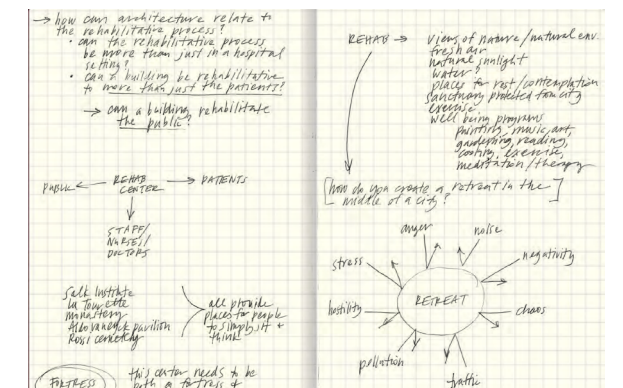 → how can architecture relate to
the rehabilitative process?
• can the rehabilitative process
be more than just in a hospital
setting?
• can a building be rehabilitative
to more than just the patients?
→ can a building rehabilitate
the public?
PUBLIC ← REHAB CENTER → PATIENTS
↓
STAFF/
NURSES/
DOCTORS
Salk Institute
La Tourette
monastery
pavilion
Rossi cemetery
all provide
places for people
to simply sit +
think
FORTRESS
this center needs to be
both a fortress +
REHAB → views of nature/natural env.
fresh air
natural sunlight
water?
places for rest/contemplation
sanctuary protected from city
exercise
well being programs
painting, music, art,
gardening, reading,
cooking, exercise,
meditation/therapy
[how do you create a retreat in the
middle of a city?]
anger
noise
stress
negativity
RETREAT
hostility
chaos
pollution
traffic